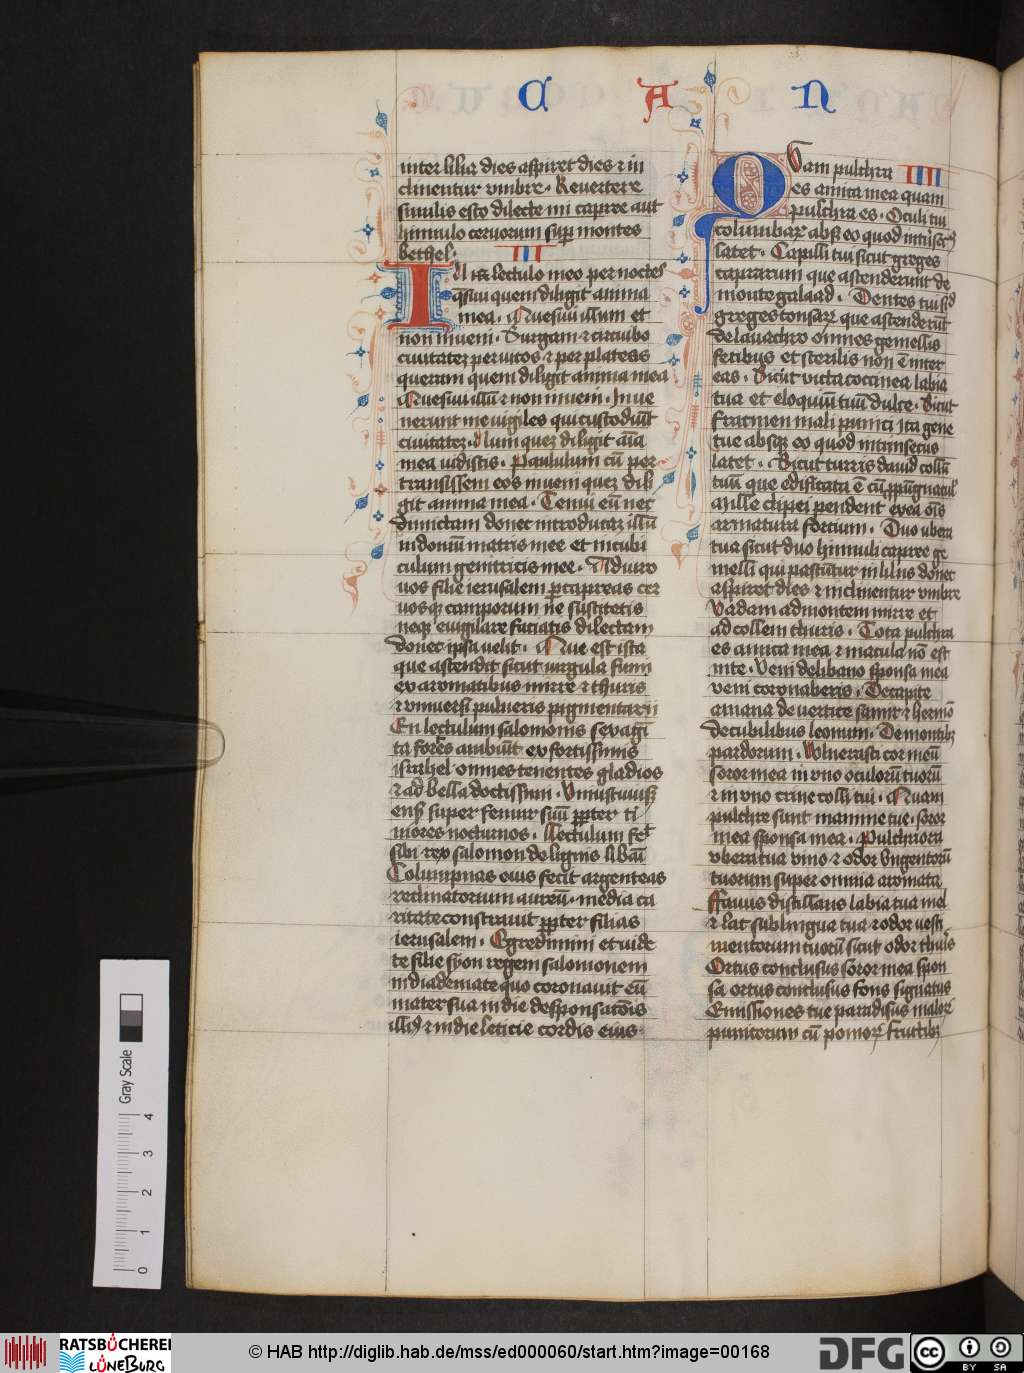 C A N
inter lilia dies aspiret dies ⁊ in
clinentur vmbre. Reuertere
similis esto dilecte mi capree aut
hinnulo ceruorum sup montes
bethel. III
IN lectulo meo per noctes
q̄siui quem diligit anima
mea. Quesiui illum et
non inueni. Surgam ⁊ circuibo
ciuitateꝫ per vicos ⁊ per plateas
queram quem diligit anima mea
Quesiui illū ⁊ non inueni. Inue
nerunt me vigiles qui custodiūt
ciuitateꝫ. Num queꝫ diligit aīa
mea vidistis. Paululum cū per
transissem eos inueni queꝫ dili
git anima mea. Tenui eū nec
dimictam donec introducaꝫ illū
in domū matris mee et in cubi
culum genitricis mee. Adiuro
uos filie ierusalem ꝑ capreas cer
uosqꝫ camporum ne suscitetis
neqꝫ euigilare faciatis dilectam
donec ipsa uelit. Que est ista
que ascendit sicut uirgula fumi
ex aromatibus mirre ⁊ thuris
⁊ vniuersi pulueris pigmentarii
En lectulum salomonis sexagī
ta fortes ambiūt ex fortissimis
israhel omnes tenentes gladios
⁊ ad bella doctissimi. Vniuscuiusqꝫ
ensis super femur suū ꝓpter ti
mores nocturnos. Lectulum fet
sibi rex salomon de lignis libani
Columpnas eius fecit argenteas
reclinatorium aureū. media ca
ritate constrauit ꝓpter filias
ierusalem. Egredimini et uide
te filie syon regem salomonem
in diademate quo coronauit eū
mater sua in die desponsatōis
illiꝰ ⁊ in die leticie cordis eius.
Quam pulchra IIII
es amica mea quam
pulchra es. Oculi tui
columbaꝝ absqꝫ eo quod intrisecꝰ
latet. Capilli tui sicut greges
caprarum que ascenderunt de
monte galaad. Dentes tui sic
greges tonsaꝝ que ascenderūt
de lauachro omnes gemellis
fetibus et sterilis non ē inter
eas. Sicut victa coccinea labia
tua et eloquiū tuū dulce. Sicut
fracmen mali punici ita gene
tue absqꝫ eo quod intrinsecus
latet. Sicut turris dauid collū
tuū que edificata ē cū ꝓpūgnacul
mille clipei pendent ex ea oīs
armatura fortium. Duo ubera
tua sicut duo hinnuli capree ge
melli qui pascūtur in liliis donec
aspiret dies ⁊ inclinentur vmbre
Vadam ad montem mirre et
ad collem thuris. Tota pulchra
es amica mea ⁊ macula nō est
in te. Veni de libano sponsa mea
veni coronaberis. De capite
amana de uertice sanir ⁊ hermō
de cubilibus leonum. De montibꝫ
pardorum. Vulnerasti cor meū
soror mea in vno oculorū tuorū
⁊ in vno crine colli tui. Quam
pulchre sunt mamme tue. soror
mea sponsa mea. Pulchriora
vbera tua vino ⁊ odor vngentorū
tuorum super omnia aromata
ffauus distillans labia tua mel
⁊ lac sub lingua tua ⁊ odor uesti
mentorum tuorū sicut odor thuris
Ortus conclusus soror mea spon
sa ortus conclusus fons signatus
Emissiones tue paradisus maloꝝ
punicorum cū pomoꝝ fructibꝫ
Gray Scale
0 1 2 3 4
RATSBÜCHEREI
LÜNEBURG
© HAB http://diglib.hab.de/mss/ed000060/start.htm?image=00168
DFG
cc BY SA